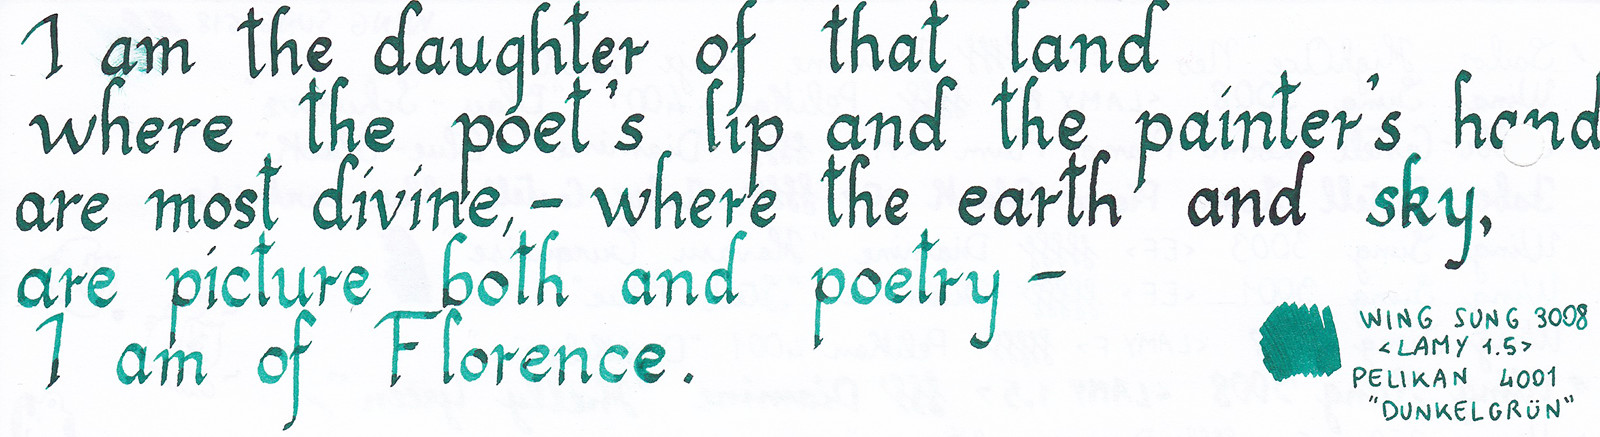 I am the daughter of that land
where the poet's lip and the painter's hand
are most divine, – where the earth and sky,
are picture both and poetry –
I am of Florence.
WING SUNG 3008
<LAMY 1.5>
PELIKAN 4001
"DUNKELGRÜN"